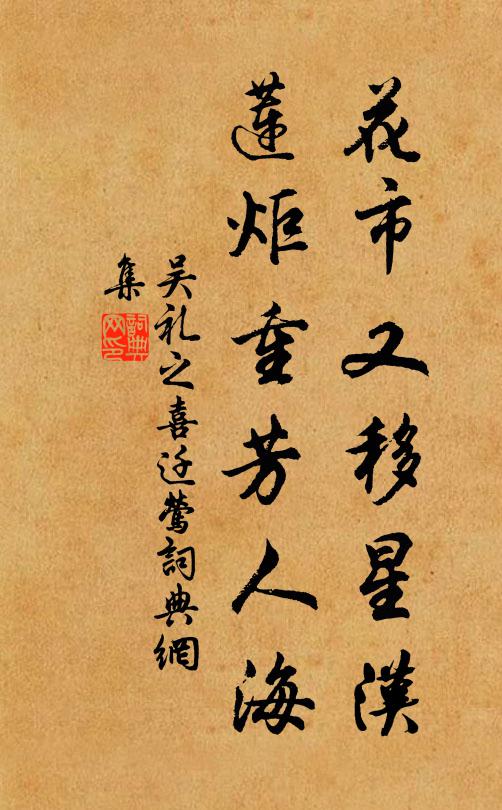 花市又移星漢
蓮炬重芳人海
吴礼之喜迁鶯詞典網
集
詞典
网印